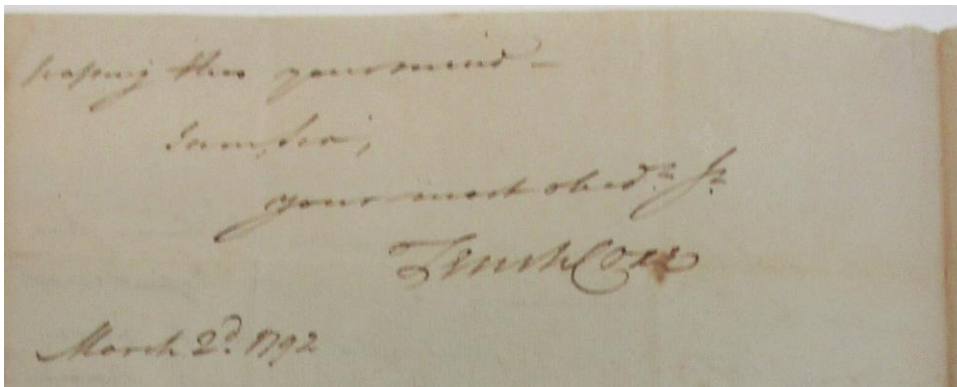 passing thro your mind —
I am, Sir,
your most obedt. St.
Tench Coxe
March 2d. 1792